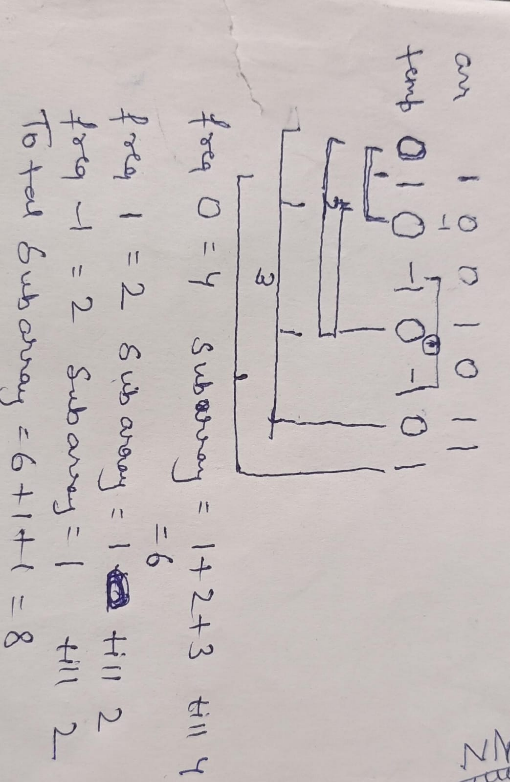 arr 1 0 0 1 0 1 1
-1
temp 0 1 0 -1 0 -1 0 1
1 2
3
freq 0 = 4 subarray = 1+2+3 till 4
= 6
freq 1 = 2 subarray = 1 till 2
freq -1 = 2 subarray = 1 till 2
Total subarray = 6+1+1 = 8